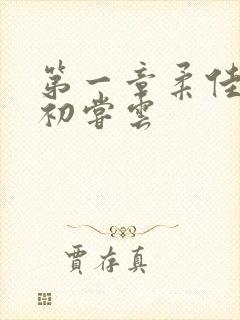 第一章柔佳
初尝云
賈存真